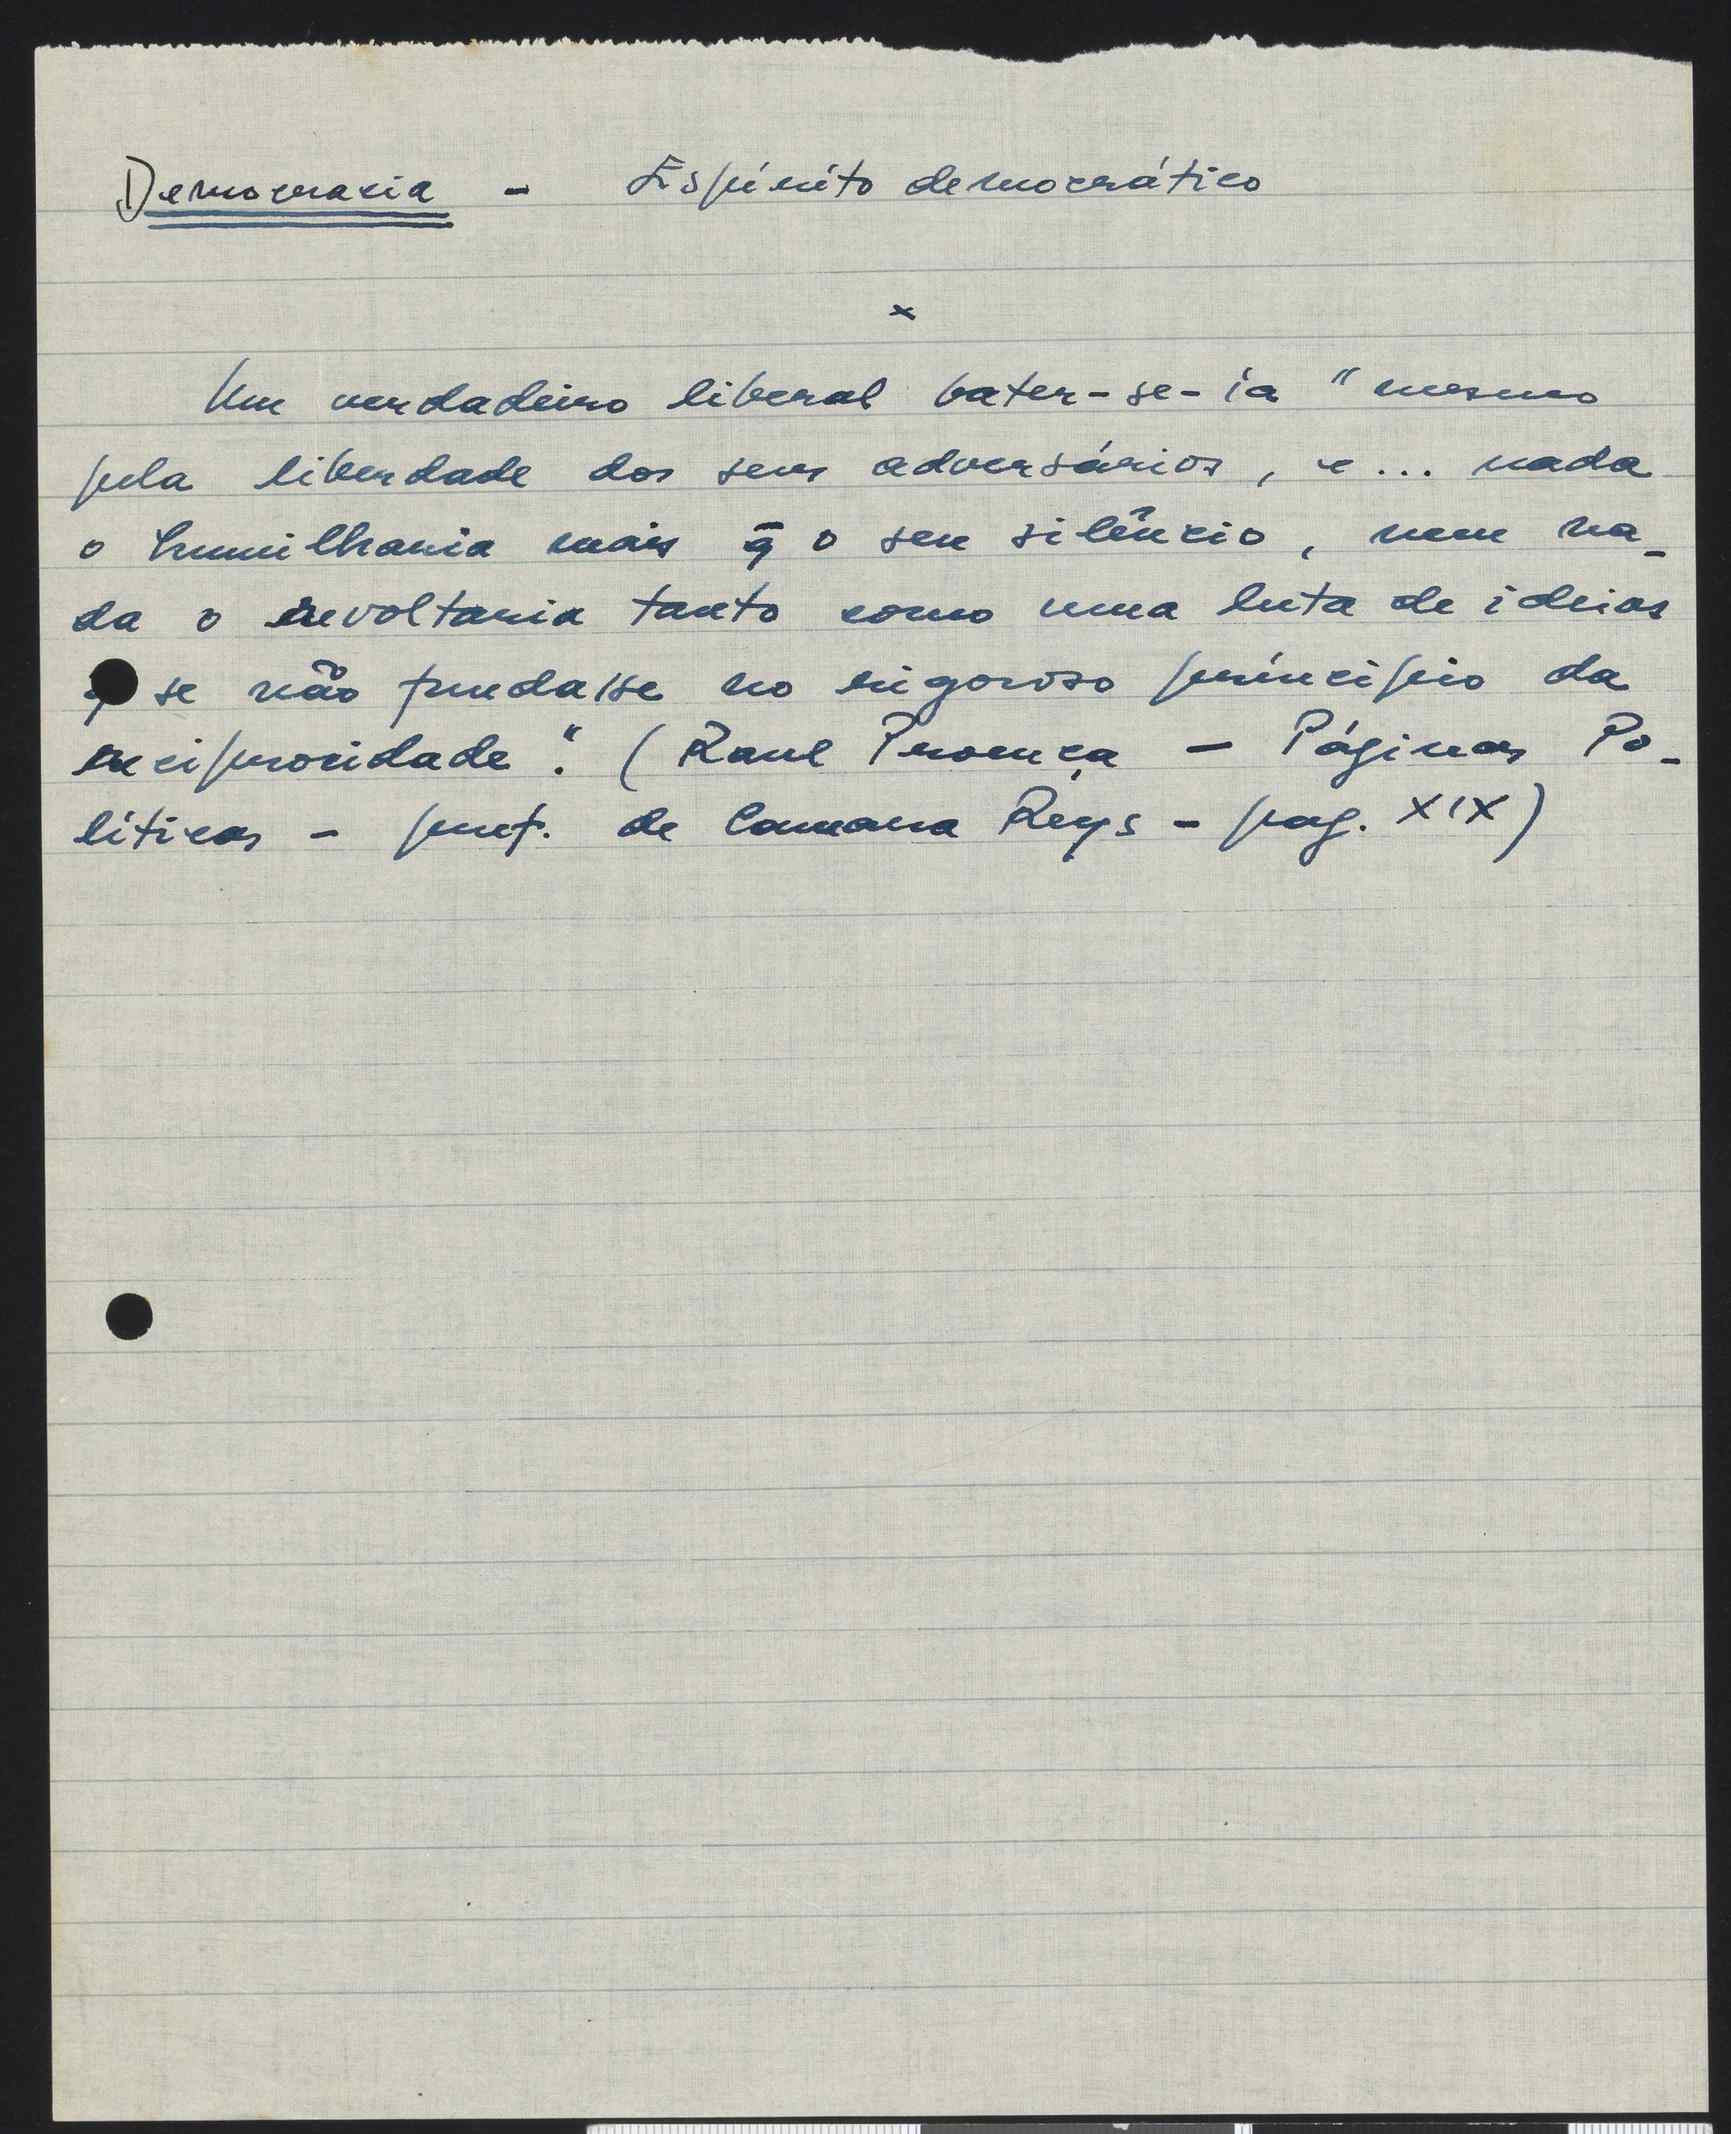 Democracia - Espírito democrático
x
Um verdadeiro liberal bater-se-ia "mesmo
pela liberdade dos seus adversários, e... nada
o humilharia mais q̄ o seu silêncio, nem na-
da o revoltaria tanto como uma luta de ideias
q̄ se não fundasse no rigoroso princípio da
reciprocidade". (Raul Proença - Páginas Po-
líticas - pref. de Camara Reys - pag. XIX)